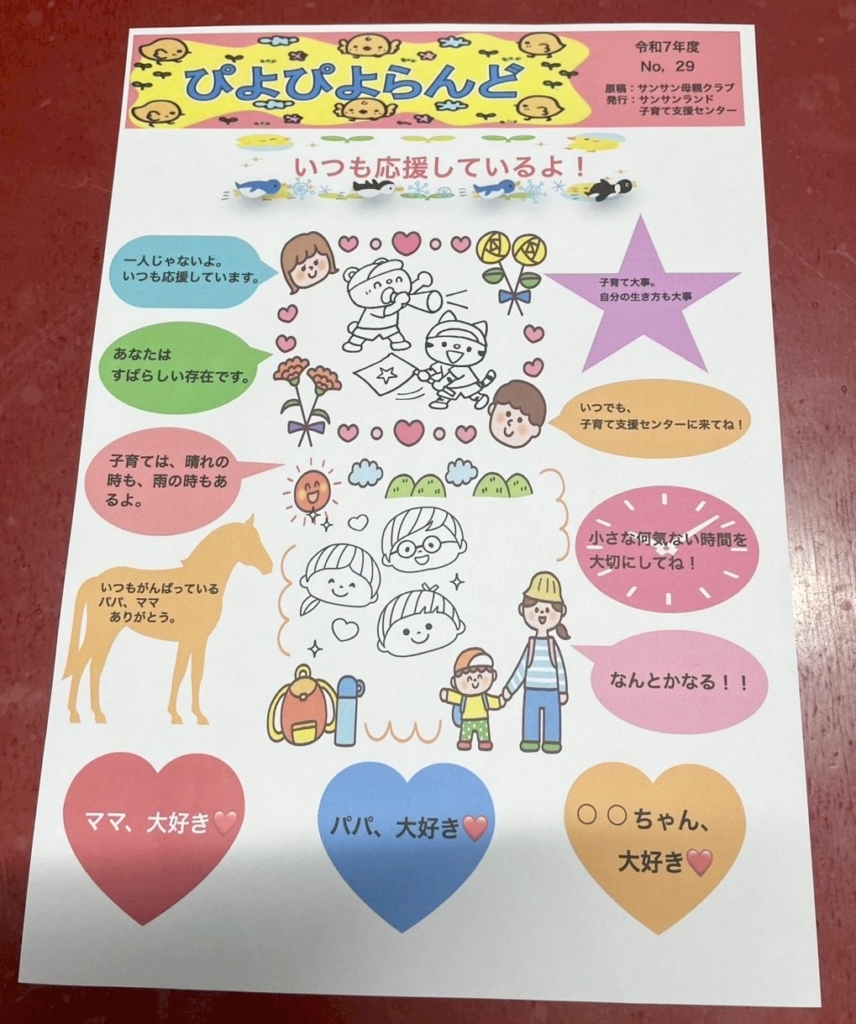 ぴよぴよらんど
令和7年度
No, 29
原稿：サンサン母親クラブ
発行：サンサンランド
子育て支援センター
いつも応援しているよ！
一人じゃないよ。
いつも応援しています。
子育て大事。
自分の生き方も大事
あなたは
すばらしい存在です。
いつでも、
子育て支援センターに来てね！
子育ては、晴れの
時も、雨の時もあ
るよ。
小さな何気ない時間を
大切にしてね！
いつもがんばっている
パパ、ママ
ありがとう。
なんとかなる！！
ママ、大好き❤️
パパ、大好き❤️
○○ちゃん、
大好き❤️